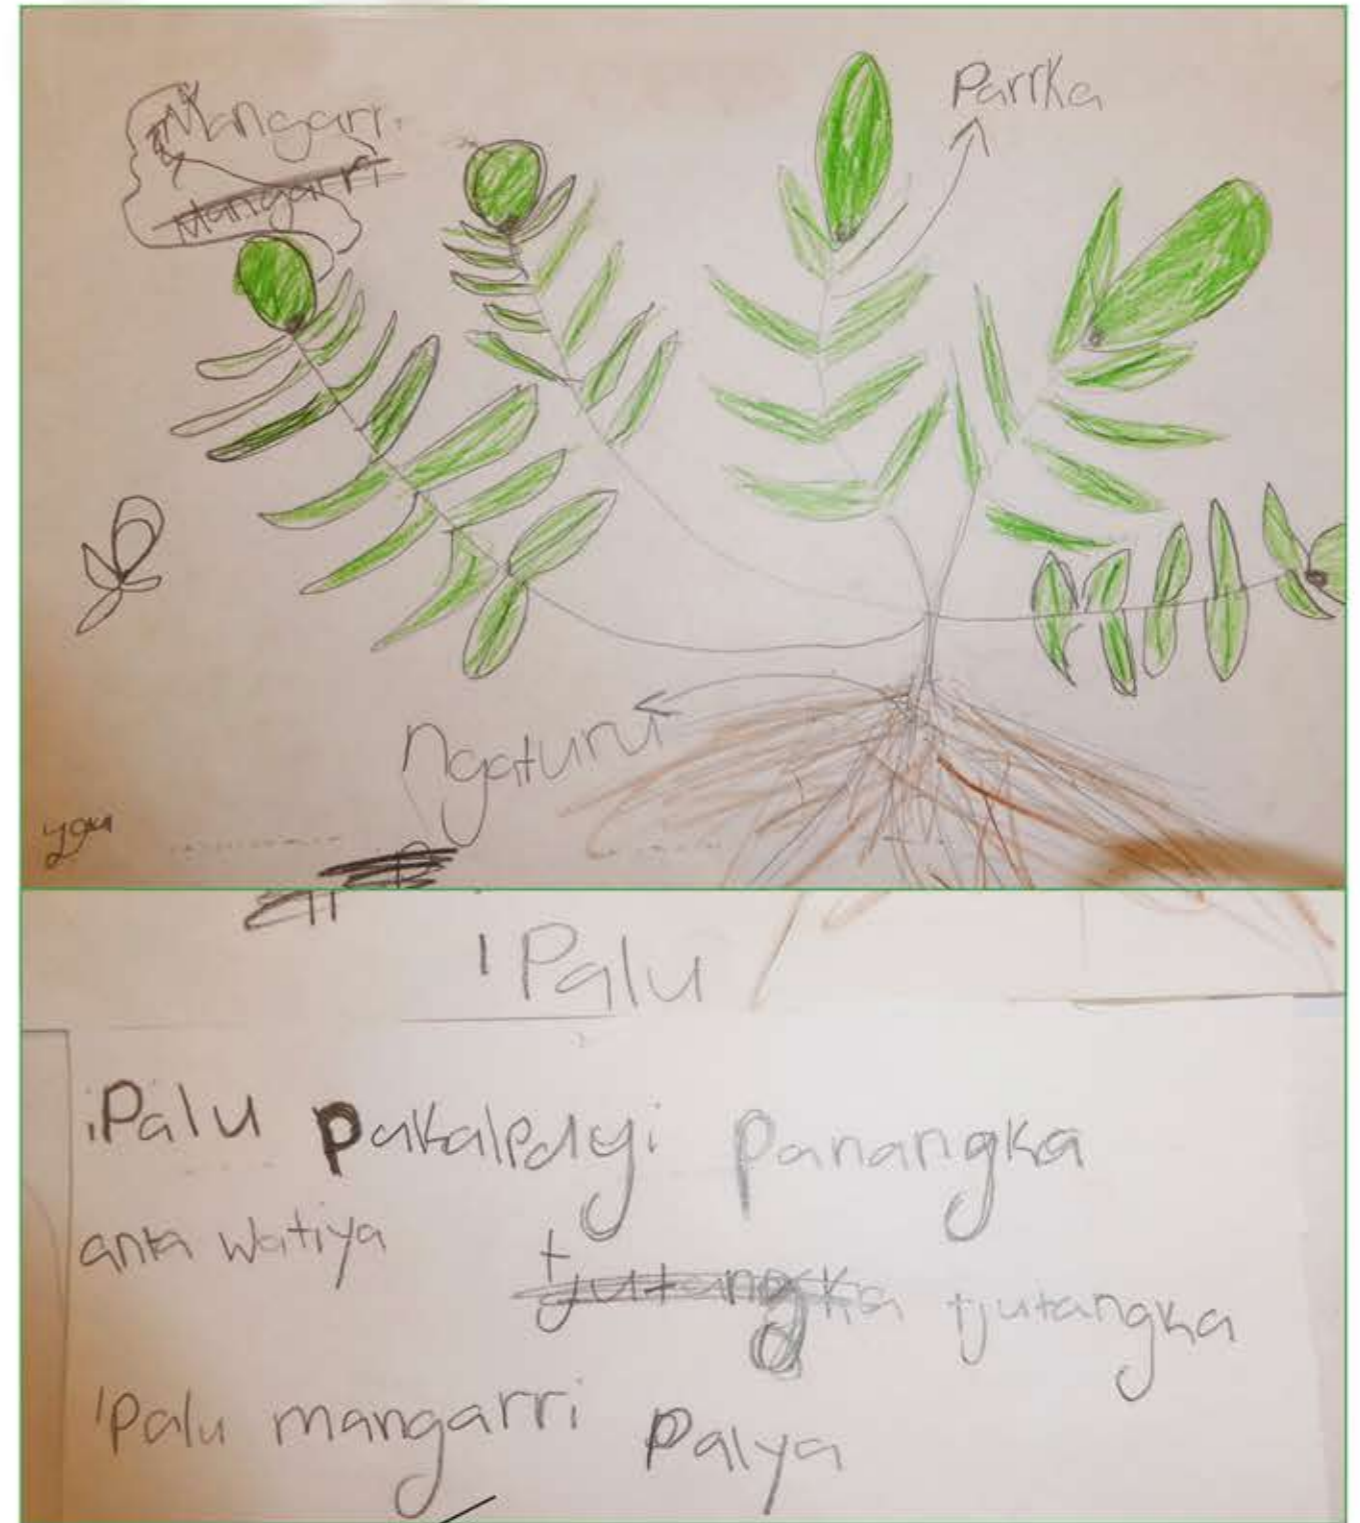 Mangarri
Mangarri
Parrka
Ngaturu
iPalu
iPalu pakalpayi panangka
anta watiya tjutangka tjutangka
iPalu mangarri palya